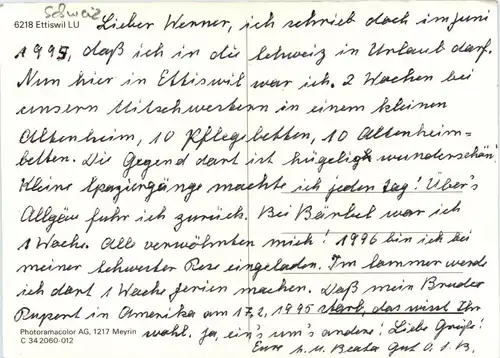 Schweiz
6218 Ettiswil LU
Lieber Werner, ich schrieb doch im Juni
1995, daß ich in die Schweiz in Urlaub darf.
Nun hier in Ettiswil war ich 2 Wochen bei
unsern Mitschwestern in einem kleinen
Altenheim, 10 Pflegebetten, 10 Altenheim-
betten. Die Gegend dort ist hügelig wunderschön!
Kleine Spaziergänge machte ich jeden Tag! Über's
Allgäu fuhr ich zurück. Bei Bärbel war ich
1 Woche. Alle verwöhnten mich! 1996 bin ich bei
meiner Schwester Rese eingeladen. Im Sommer werde
ich dort 1 Woche Ferien machen. Daß mein Bruder
Rupert in Amerika am 17.2.1995 starb, das wisst Ihr
wohl. Ja, ein's um's andere! Liebe Grüße!
Eure
Beata
Photoramacolor AG, 1217 Meyrin
C 34 2060-012